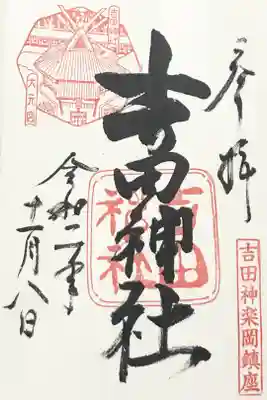 奉拝
吉田神社
令和二年
十一月八日
吉田神社
吉田神楽岡鎮座
大元宮